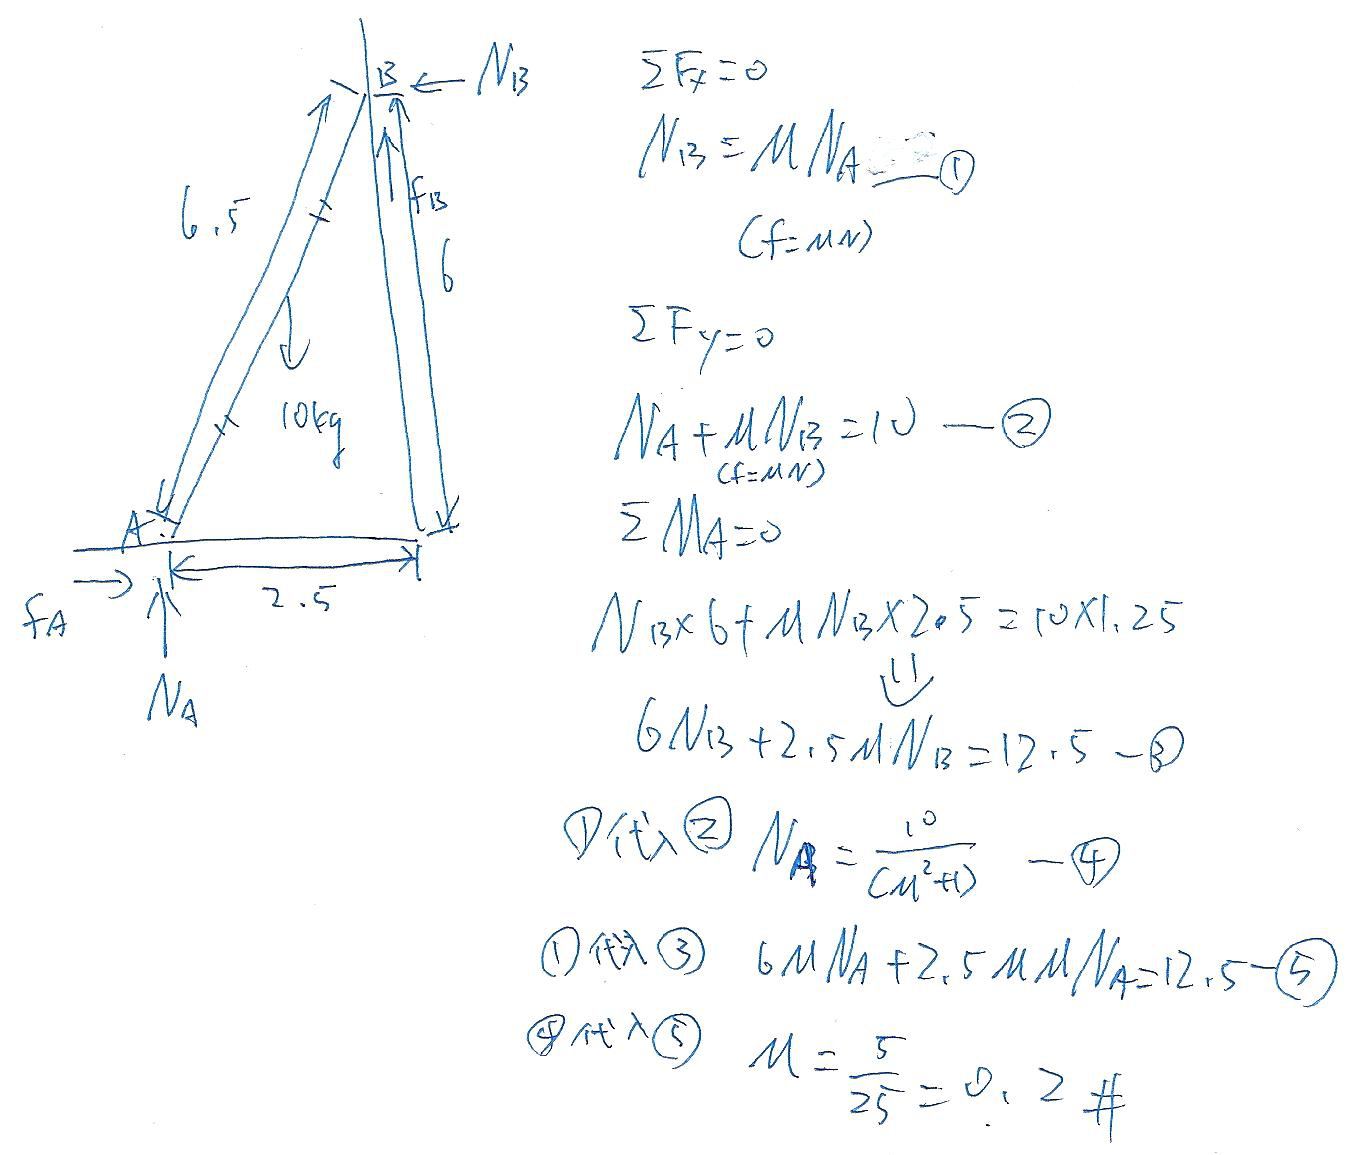 B
N_B
6.5
f_B
6
10kg
A
2.5
f_A
N_A
ΣFx=0
N_B=μN_A —①
(f=μN)
ΣFy=0
N_A+μN_B=10 —②
(f=μN)
ΣM_A=0
N_B×6+μN_B×2.5=10×1.25
⇓
6N_B+2.5μN_B=12.5 —③
①代入② N_A=10/(μ²+1) —④
①代入③ 6μN_A+2.5μμN_A=12.5—⑤
④代入⑤ μ=5/25=0.2 #